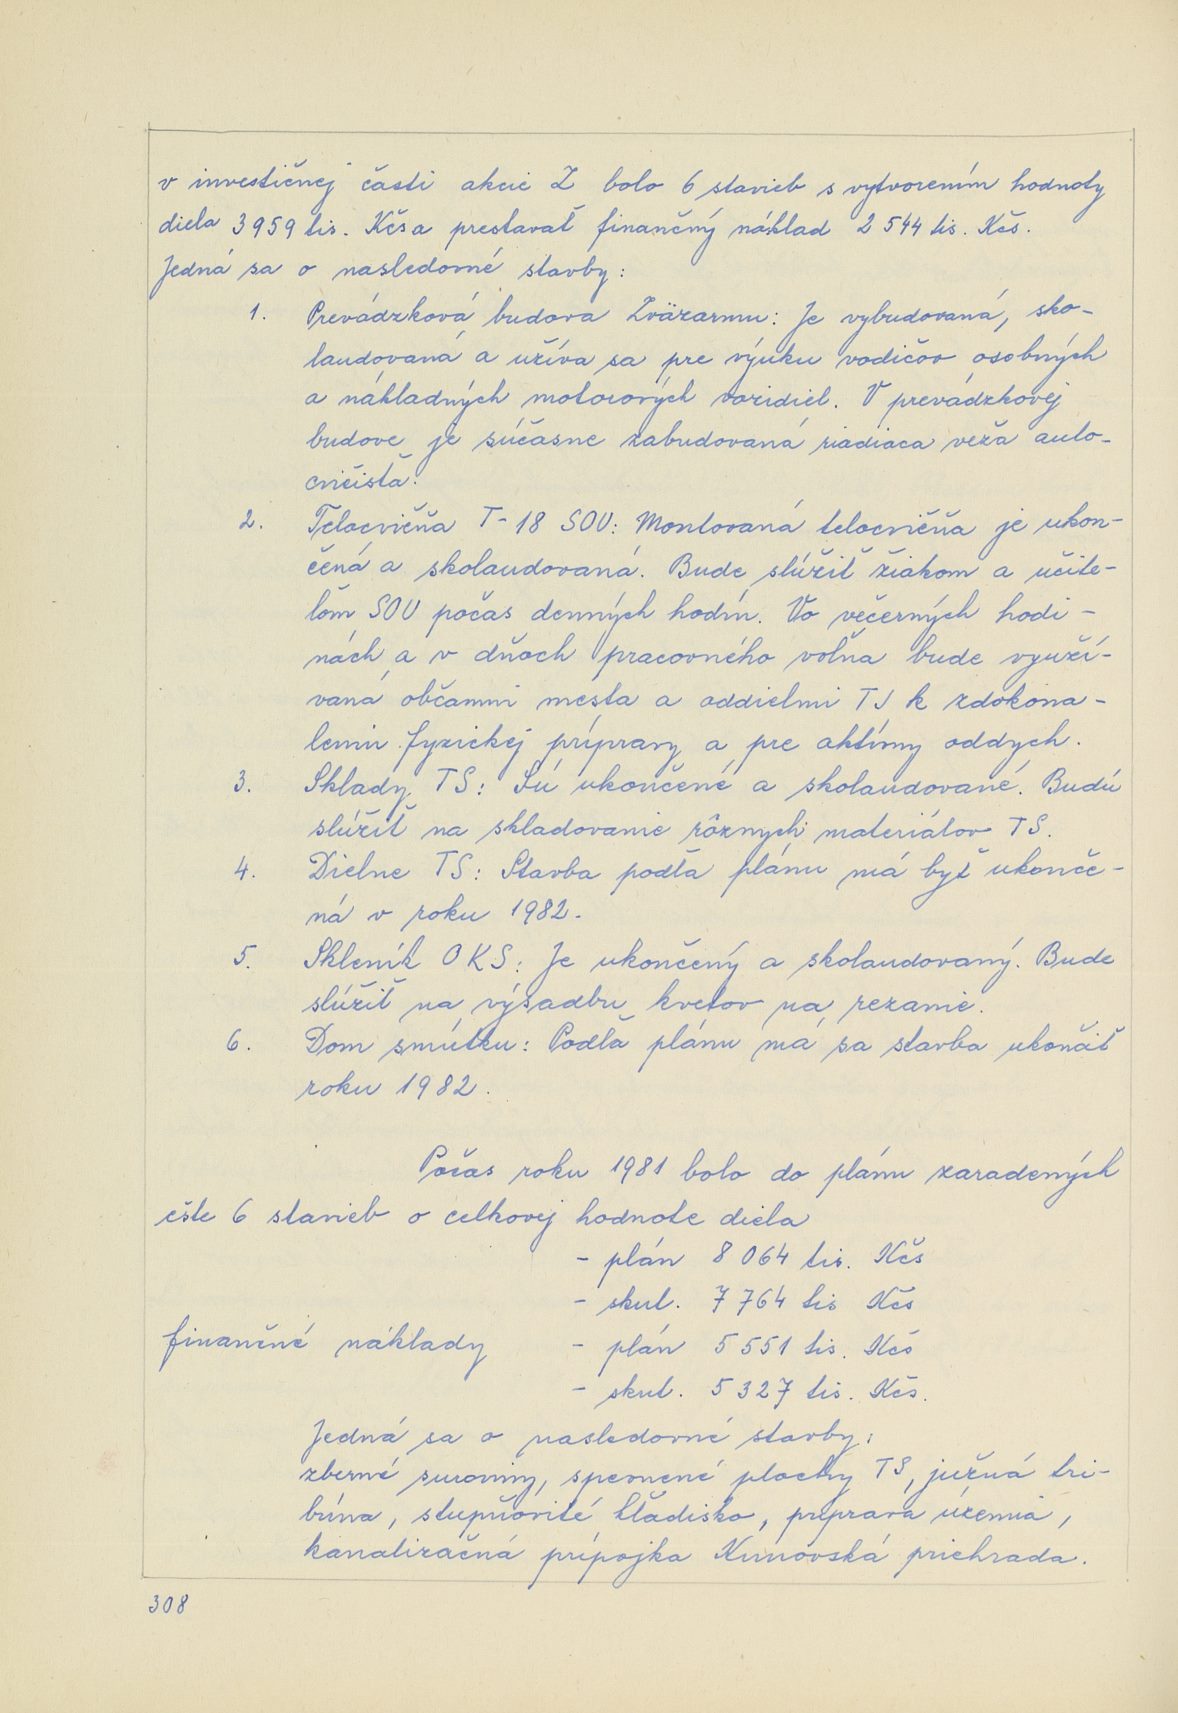 v investičnej časti akcie Z bolo 6 stavieb s vytvorením hodnoty
diela 3959 tis. Kčs a prestavať finančný náklad 2 544 tis. Kčs.
Jedná sa o nasledovné stavby:
1. Prevádzková budova Zväzarmu: Je vybudovaná, sko-
laudovaná a užíva sa pre výuku vodičov osobných
a nákladných motorových vozidiel. V prevádzkovej
budove je súčasne zabudovaná riadiaca veža auto-
cvičišťa.
2. Telocvičňa T-18 SOU: Montovaná telocvičňa je ukon-
čená a skolaudovaná. Bude slúžiť žiakom a učite-
ľom SOU počas denných hodín. Vo večerných hodi-
nách a v dňoch pracovného voľna bude využí-
vaná občanmi mesta a oddielmi TJ k zdokona-
leniu fyzickej prípravy a pre aktívny oddych.
3. Sklady TS: Sú ukončené a skolaudované. Budú
slúžiť na skladovanie rôznych materiálov TS.
4. Dielne TS: Stavba podľa plánu má byť ukonče-
ná v roku 1982.
5. Skleník OKS: Je ukončený a skolaudovaný. Bude
slúžiť na výsadbu kvetov na rezanie.
6. Dom smútku: Podľa plánu má sa stavba ukončiť
roku 1982.
Počas roku 1981 bolo do plánu zaradených
ešte 6 stavieb o celkovej hodnote diela
- plán 8 064 tis. Kčs
- skut. 7 764 tis Kčs
finančné náklady - plán 5 551 tis. Kčs
- skut. 5 327 tis. Kčs.
Jedná sa o nasledovné stavby:
zberné suroviny, spevnené plochy TS, južná tri-
búna, stupňovité hľadisko, príprava územia,
kanalizačná prípojka Kunovská priehrada.
308